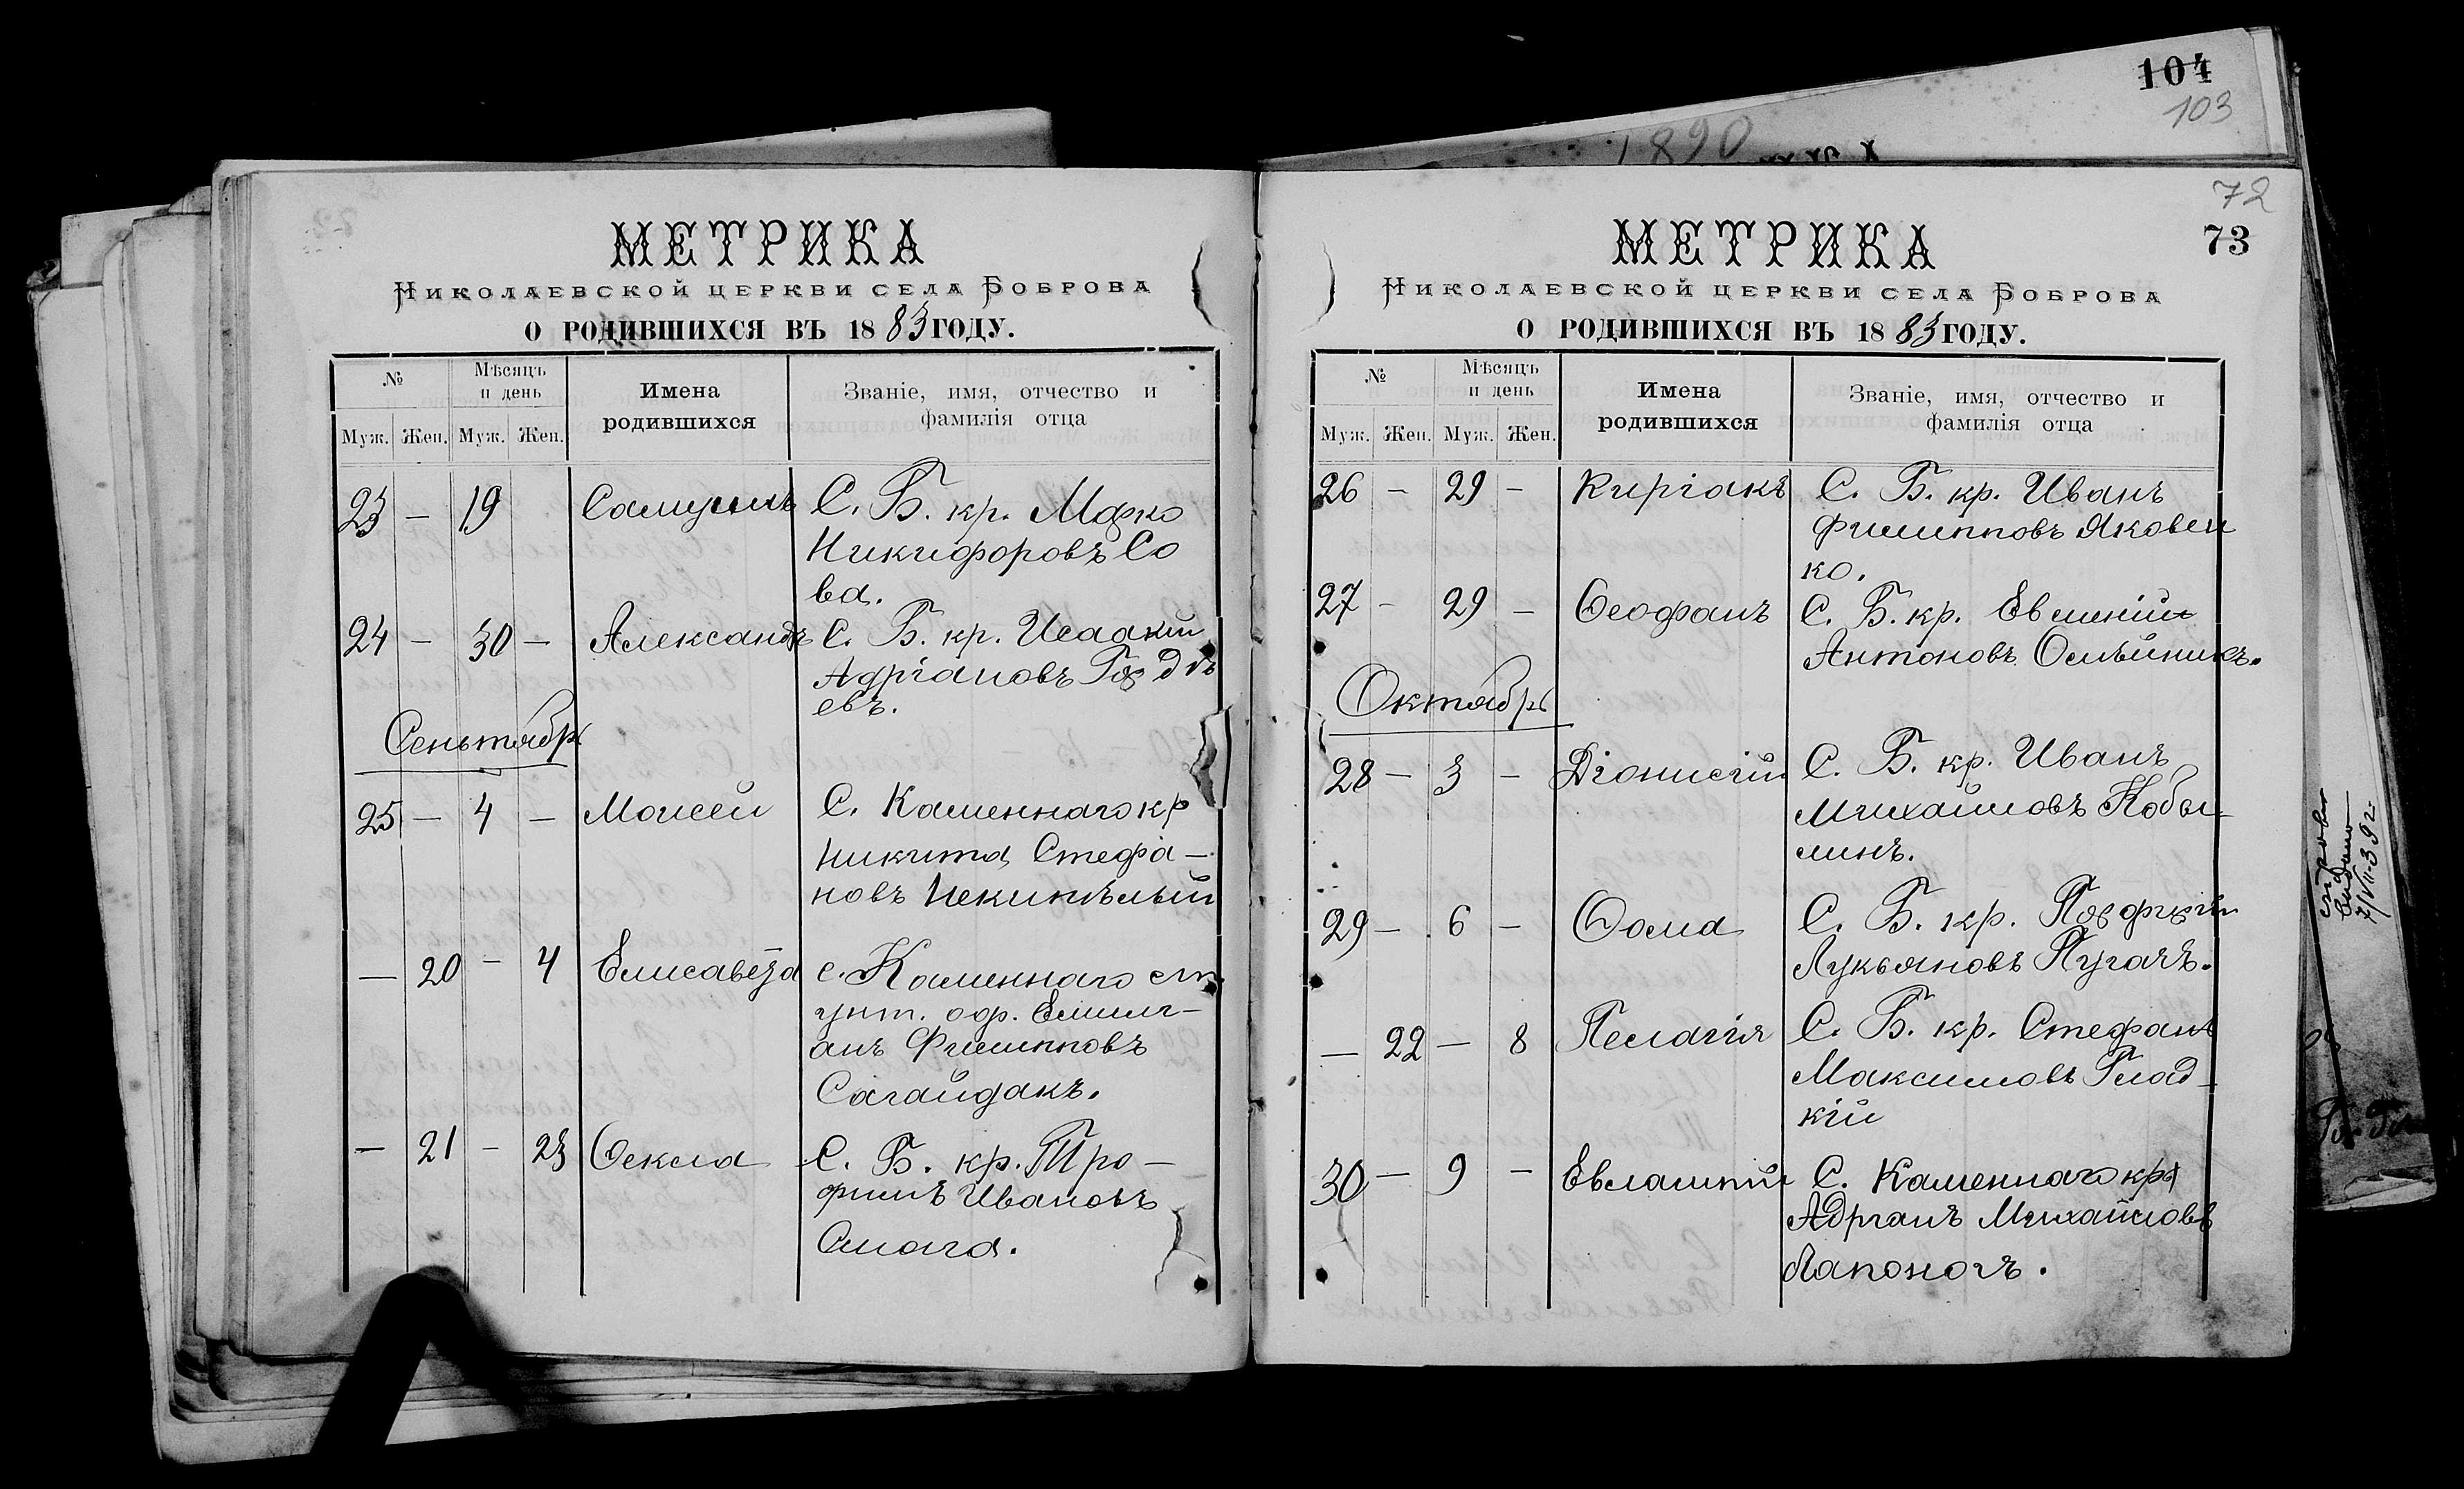 104
103
1890
МЕТРИКА
НИКОЛАЕВСКОЙ ЦЕРКВИ СЕЛА БОБРОВА
О РОДИВШИХСЯ ВЪ 1883 ГОДУ.
№ Мѣсяцъ и день Имена родившихся Званіе, имя, отчество и фамилія отца
Муж. Жен. Муж. Жен.
23 — 19 Самуилъ С. Б. кр. Марко
Никифоровъ Со
ва.
24 — 30 — Александръ С. Б. кр. Исаакій
Адріановъ Гордѣ
евъ.
Сеньтябрь
25 — 4 — Моисей С. Каменнаго кр
Никита Стефа—
новъ Некипѣлый
— 20 — 4 Елисавета с. Каменнаго
унт. оф. Емили—
анъ Филипповъ
Сагайдакъ.
— 21 — 23 Ѳекла С. Б. кр. Тро—
фимъ Ивановъ
Смага.
72
73
МЕТРИКА
НИКОЛАЕВСКОЙ ЦЕРКВИ СЕЛА БОБРОВА
О РОДИВШИХСЯ ВЪ 1883 ГОДУ.
№ Мѣсяцъ и день Имена родившихся Званіе, имя, отчество и фамилія отца
Муж. Жен. Муж. Жен.
26 — 29 — Киріакъ С. Б. кр. Иванъ
Филипповъ Яковен
ко.
27 — 29 — Ѳеофанъ С. Б. кр. Евменій
Антоновъ Олѣйникъ.
Октябрь
28 — 3 — Діонисій С. Б. кр. Иванъ
Михайловъ Кобы—
линъ.
29 — 6 — Ѳома С. Б. кр. Порфирій
Лукьяновъ Пугачъ.
— 22 — 8 Пелагія С. Б. кр. Стефанъ
Максимовъ Глад—
кій
30 — 9 — Евлампій С. Каменнаго кр
Адріанъ Михайловъ
Лапоногъ.